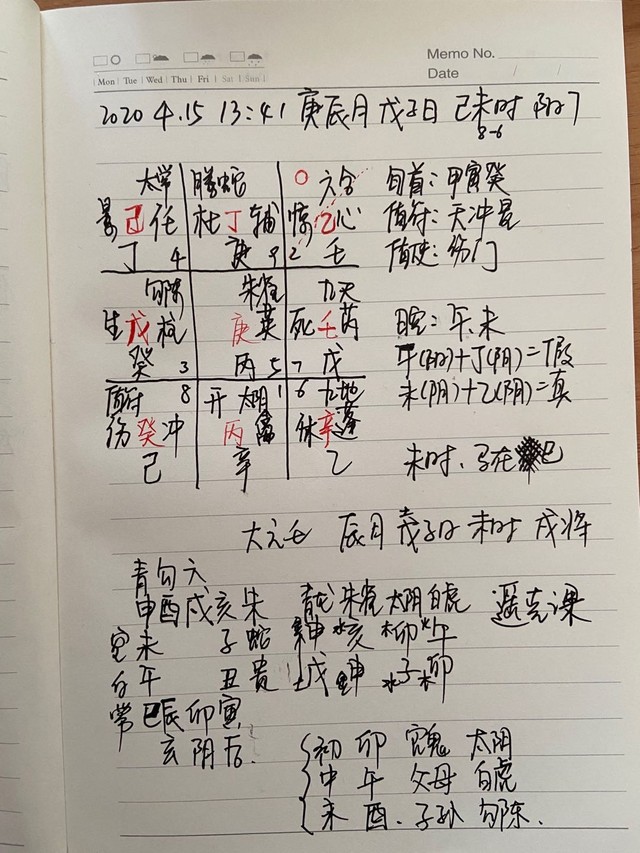 Memo No.
Mon Tue Wed Thu Fri Sat Sun
Date / /
2020 4.15 13:41 庚辰月 戊子日 己未时 阴7
8-6
太常 螣蛇 六合 旬首:甲寅癸
景己任 杜丁辅 惊乙心 值符:天冲星
丁 4 庚 9 2 壬 值使:伤门
勾陈 朱雀 九天
生戊柱 庚英 死壬芮 日空:午.未
癸 3 丙 5 7 戊 午(阳)+丁(阴)=假
值符 8 开 太阴 1 6 九地 未(阴)+乙(阴)=真
伤癸冲 丙 休辛蓬
己 辛 乙 未时.马在巳
大六壬 辰月 戊子日 未时 戌将
青勾六
申酉戌亥朱 青龙 朱雀 太阴 白虎 遥克课
空未 子蛇 申 水亥 木卯 火午
白午 丑贵 土戊 申 水子 木卯
常巳辰卯寅
玄阴后.
初 卯 官鬼 太阴
中 午 父母 白虎
末 酉.子孙 勾陈.